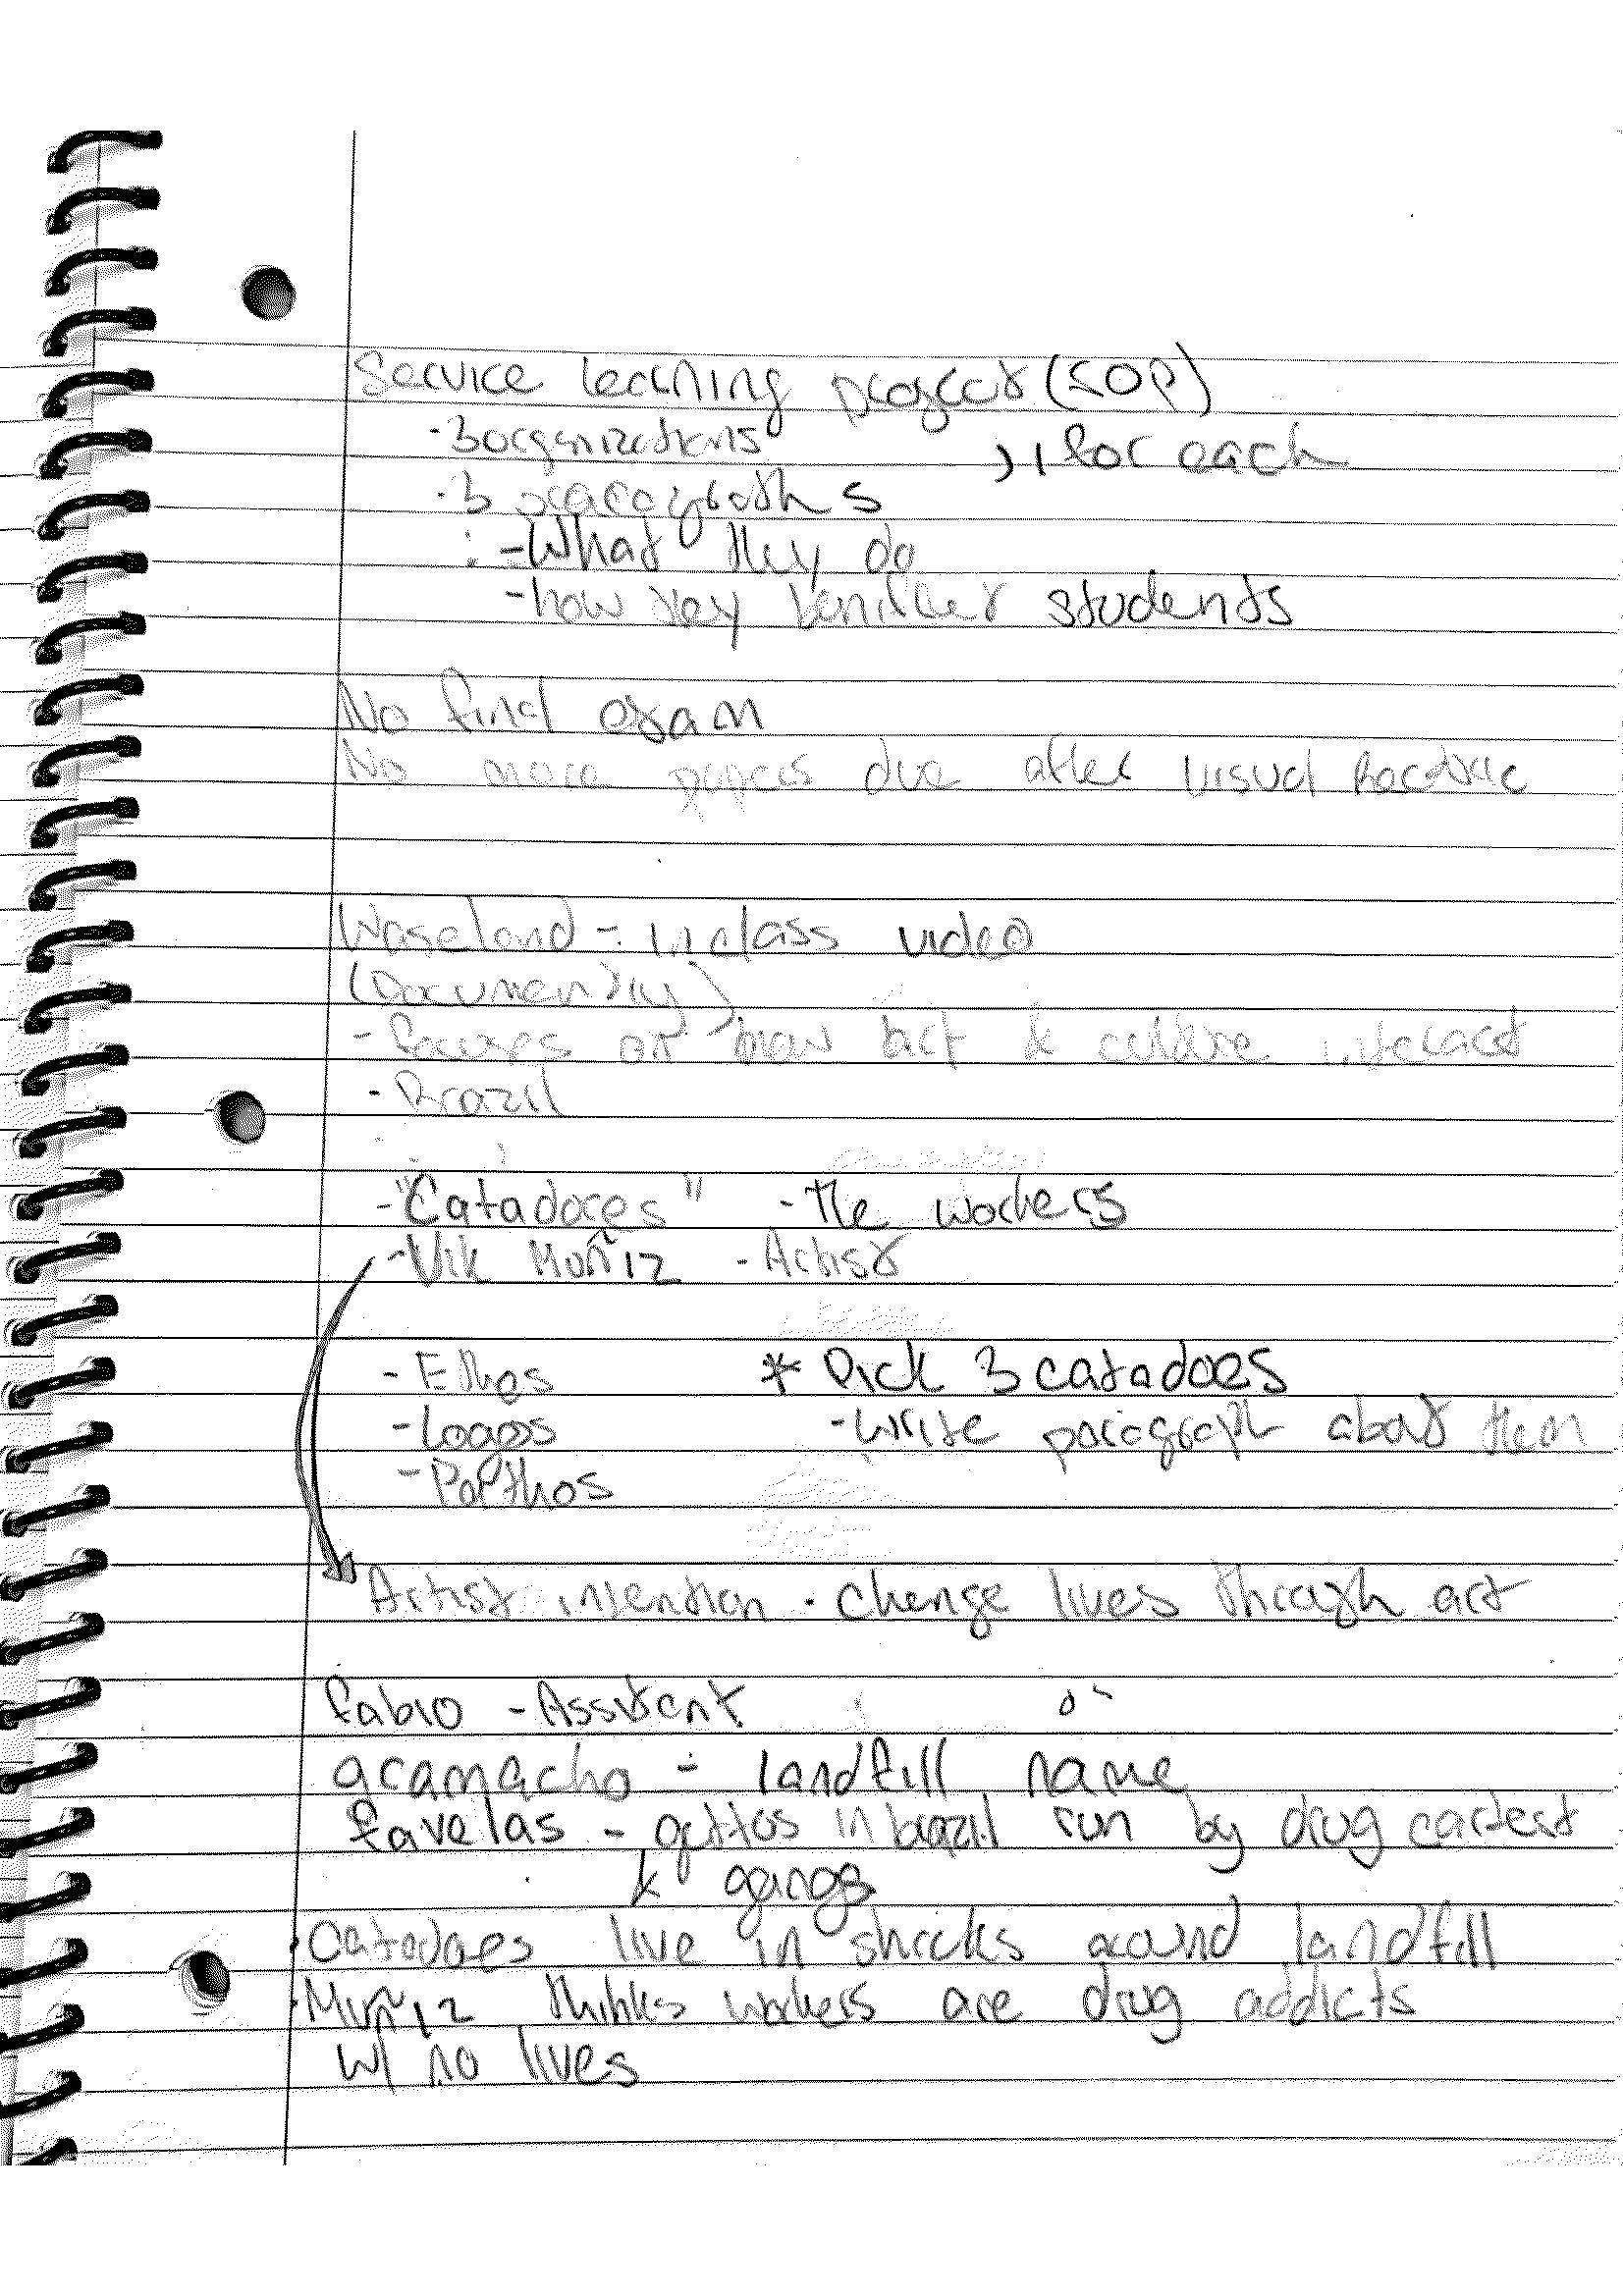 Service learning project (SOP)
- 3 organizations , 1 for each
- 3 paragraphs
- What they do
- how they benifiet students
No final exam
No more papers due after visual
Waseland - in class video
(Documentary)
- focuses on how art & culture interact
- Brazil
- "Catadores" - The workers
- Vik Muñiz - Artist
- Ethos * Pick 3 catadoes
- Logos - write paragraph about them
- Pathos
Artist intention - change lives through art
fabio - Assistant
gramacho - landfill name
favelas - gettos in brazil run by drug cartest
& gangs
Catadoes live in shacks around landfill
Muñiz thinks workers are drug addicts
w/ no lives